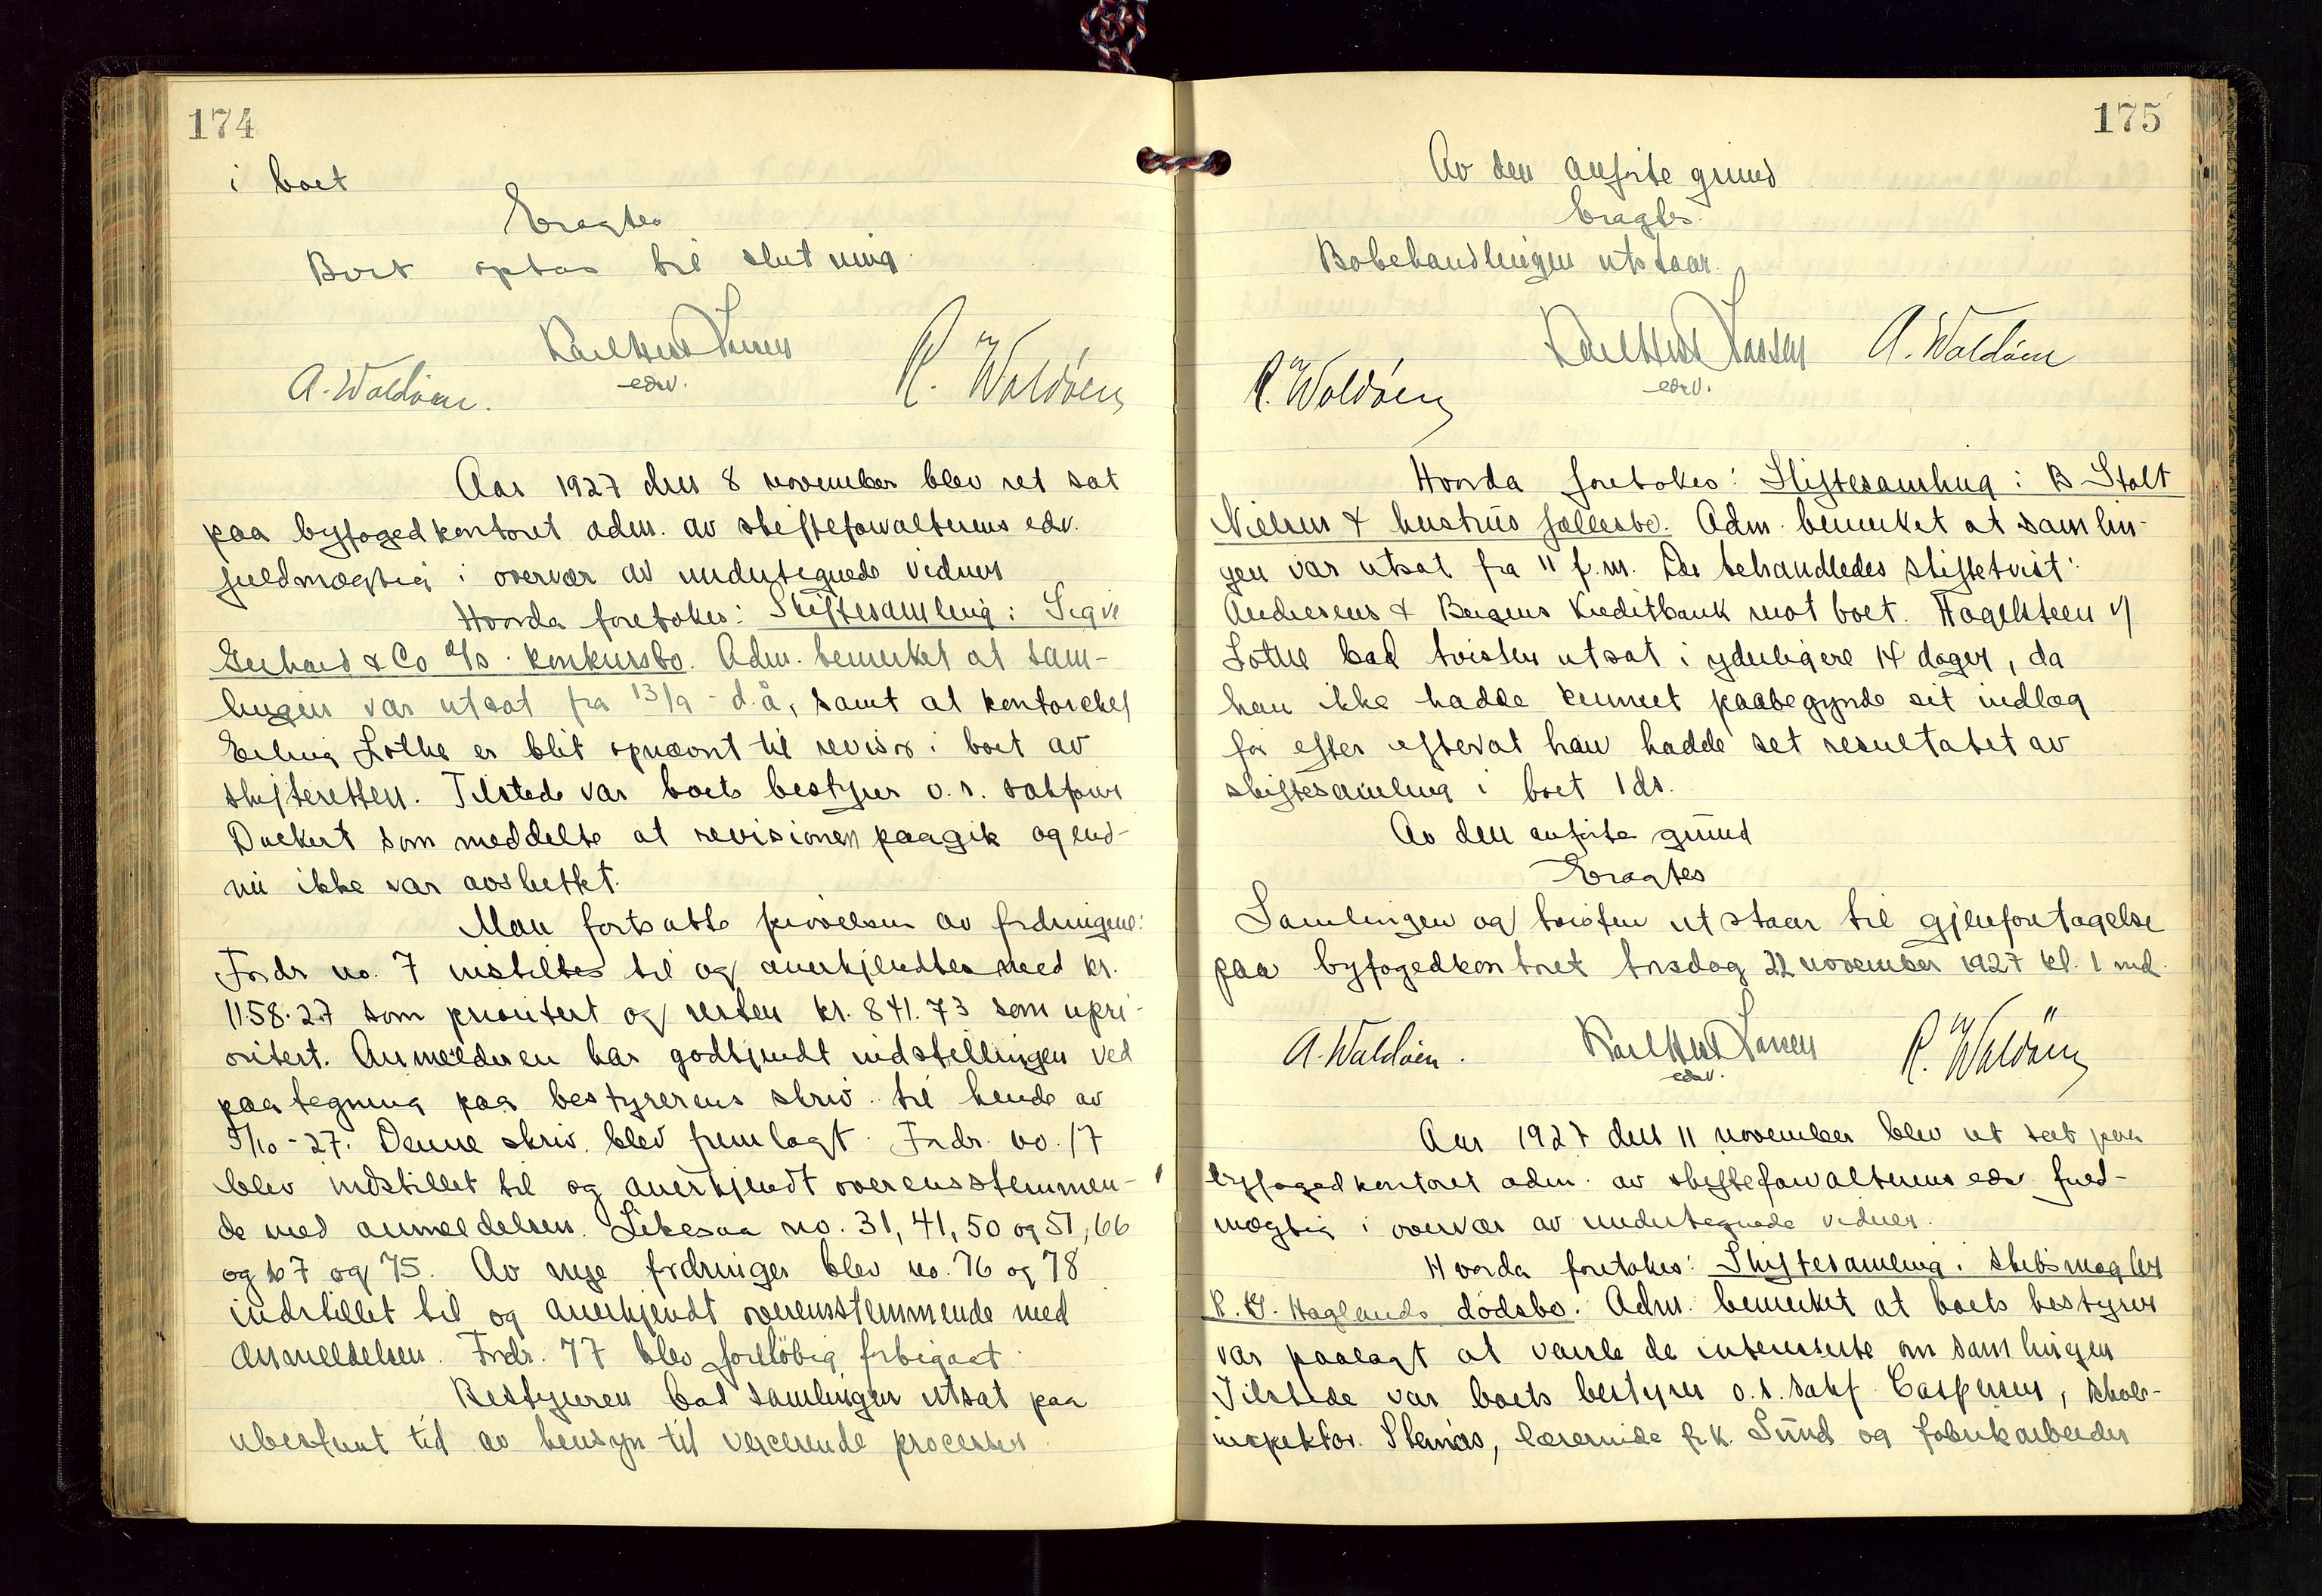 174
i boet
Eragtes
Boet optas til slutning.
Karl Hess Larsen
edsv.
A. Waldöen.
R. Waldöen
Aar 1927 den 8 november blev ret sat
paa byfogedkontoret adm. av skifteforvalterens edsv.
fuldmægtig i overvær av undertegnede vidner
Hvorda foretokes: Skiftesamling i Sigv
Gerhard & Co A/S. konkursbo. Adm. bemerket at sam-
lingen var utsat fra 13/9 - d.å, samt at kontorchef
Erling Lothe er blit opnævnt til revisor i boet av
skifteretten. Tilstede var boets bestyrer o.r. sakfører
Duckert som meddelte at revisionen paagik og end-
nu ikke var avsluttet.
Man fortsatte prøvelsen av fordringene:
Fordr no. 7 instilltes til og anerkjendtes med kr.
1158.27 som prioritert og resten kr. 841.73 som upri-
oritert. Anmelderen har godkjendt indstillingen ved
paategning paa bestyrerens skriv. til hende av
5/10-27. Denne skriv. blev fremlagt. Fordr. no. 17
blev indstillet til og anerkjendt overensstemmen-
de med anmeldelsen. Likesaa no. 31, 41, 50 og 51, 66
og 67 og 75. Av nye fordringer blev no. 76 og 78
indstillet til og anerkjendt overensstemmende med
anmeldelsen. Fordr. 77 blev foreløbig forbigaat.
Bestyreren bad samlingen utsat paa
ubestemt tid av hensyn til verserende processer
175
Av den anførte grund
Eragtes.
Bobehandlingen utstaar.
Karl Hess Larsen
A. Waldöen
edsv.
R. Waldöen
Hvorda foretokes: Skiftesamling i B Stolt
Nielsen & hustrus fællesbo. Adm. bemerket at samlin-
gen var utsat fra 11 f.m. Der behandledes skiftetvist:
Andresens & Bergens Kreditbank mot boet. Hagelsteen v/
Lothe bad tvisten utsat i yderligere 14 dager, da
han ikke hadde kunnet paabegynde sit indlæg
før efter efterat han hadde set resultatet av
skiftesamling i boet 1 ds.
Av den anførte grund
Eragtes
Samlingen og tvisten utstaar til gjenforetagelse
paa byfogedkontoret tirsdag 22 november 1927 kl. 1 md.
A. Waldöen.
Karl Hess Larsen
edsv.
R. Waldöen
Aar 1927 den 11 november blev ret sat paa
byfogedkontoret adm. av skifteforvalterens edsv. fuld-
mægtig i overvær av undertegnede vidner.
Hvorda foretokes: Skiftesamling i skibsmægler
K. G. Haglands dödsbo. Adm. bemerket at boets bestyrer
var paalagt at varsle de interesserte om samlingen
Tilstede var boets bestyrer o.r. sakf. Caspersen, skole-
inspektør Stenås, lærerinde frk. Sund og fabrikarbeider